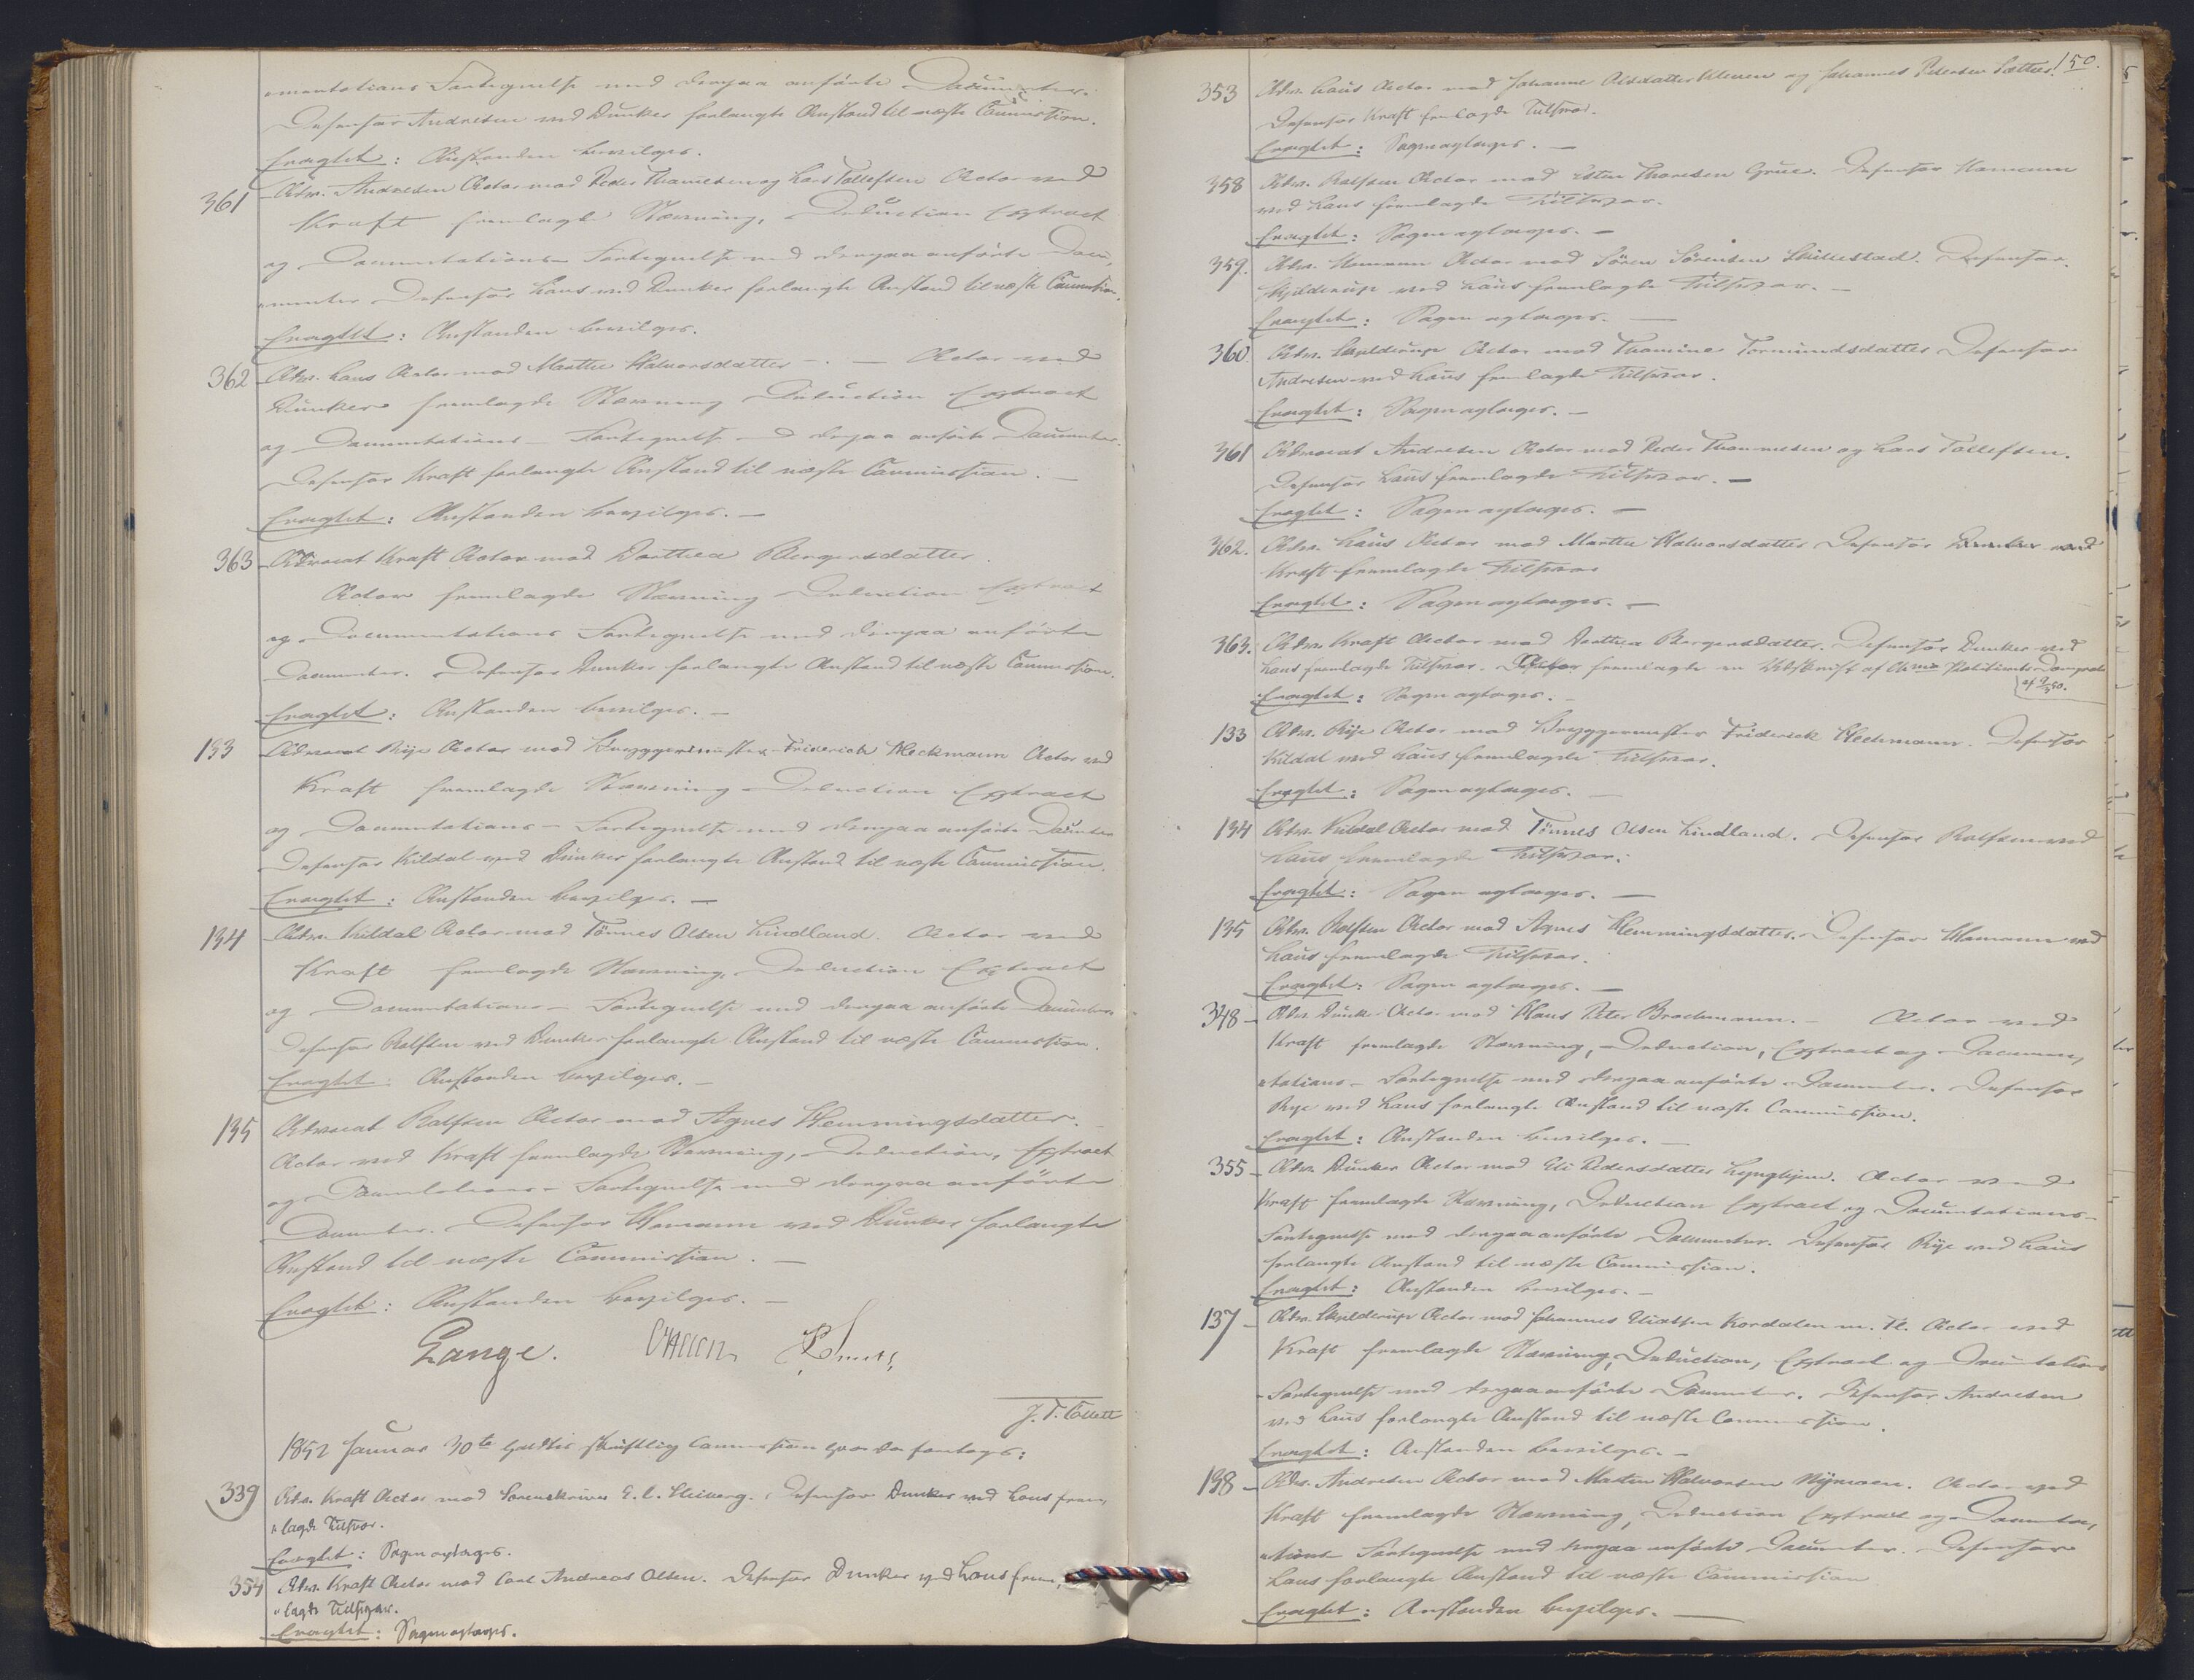 „mentations Fortegnelse med derpaa anførte Documenter.
Defensor Andresen ved Dunker forlangte Anstand til næste Commission.
Eragtet: Anstanden bevilges.
361 Adv. Andresen Actor mod Peder Thomesen og Lars Tollefsen Actor ved
Kraft fremlagde Stævning, Deduction Extract
og Documentations-Fortegnelse med derpaa anførte Docu„
„menter Defensor Haus ved Dunker forlangte Anstand til næste Commission.
Eragtet: Anstanden bevilges.
362 Adv. Haus Actor mod Marthe Halvorsdatter - . — Actor ved
Dunker fremlagde Stævning Deduction Extract
og Documentations-Fortegnelse med derpaa anførte Documenter.
Defensor Kraft forlangte Anstand til næste Commission. —
Eragtet: Anstanden bevilges. —
363 Advocat Kraft Actor mod Dorthea Bergersdatter.
Actor fremlagde Stævning Deduction Extract
og Documentations Fortegnelse med derpaa anførte
Documenter. Defensor Dunker forlangte Anstand til næste Commission.
Eragtet: Anstanden bevilges. —
133 Advocat Rije Actor mod Bryggermester Friderich Heckmann Actor ved
Kraft fremlagde Stævning Deduction Extract
og Documentations-Fortegnelse med derpaa anførte Documenter
Defensor Kildal ved Dunker forlangte Anstand til næste Commission.
Eragtet: Anstanden bevilges. —
134 Adv. Kildal Actor mod Tönnes Olsen Lindland. Actor ved
Kraft fremlagde Stævning, Deduction Extract
og Documentations-Fortegnelse med derpaa anførte Documenter
Defensor Rolfsen ved Dunker forlangte Anstand til næste Commission.
Eragtet: Anstanden bevilges. —
135 Advocat Rolfsen Actor mod Agnes Hemmingsdatter. —
Actor ved Kraft fremlagde Stævning, Deduction, Extract
og Documentations-Fortegnelse med derpaa anførte
Documenter. Defensor Homann ved Dunker forlangte
Anstand til næste Commission. —
Eragtet: Anstanden bevilges. —
Lange.
J. T. Collett
1852 Januar 30te holdtes skriftlig Commission hvorda foretoges:
339 Adv. Kraft Actor mod Sorenskriver E. C. Heiberg. Defensor Dunker ved Haus frem„
„lagde Tilsvar.
Eragtet: Sagen optages.
354 Adv. Kraft Actor mod Carl Andreas Olsen. Defensor Dunker ved Haus frem„
„lagde Tilsvar.
Eragtet: Sagen optages.
150.
353 Adv. Haus Actor mod Johanne Olsdatter og Johannes Pedersen
Defensor Kraft fremlagde Tilsvar.
Eragtet: Sagen optages. —
358 Adv. Rolfsen Actor mod Thoresen Grue. Defensor Homann
ved Haus fremlagde Tilsvar.
Eragtet: Sagen optages. —
359. Adv. Homann Actor mod Sören Sörensen Skillestad. Defensor
Skjelderup ved Haus fremlagde Tilsvar. —
Eragtet: Sagen optages. —
360. Adv. Skjelderup Actor mod Thomine Tormundsdatter Defensor
Andresen ved Haus fremlagde Tilsvar.
Eragtet: Sagen optages. —
361 Advocat Andresen Actor mod Peder Thommesen og Lars Tollefsen.
Defensor Haus fremlagde Tilsvar. —
Eragtet: Sagen optages. —
362. Adv. Haus Actor mod Marthe Halvorsdatter Defensor
Kraft fremlagde Tilsvar
Eragtet: Sagen optages. —
363. Adv. Kraft Actor mod Dorthea Bergersdatter. Defensor Dunker ved
Haus fremlagde Tilsvar. Actor fremlagde en Udskrift af
Eragtet: Sagen optages. —
133 Adv. Rije Actor mod Bryggermester Friderick Heckmann. Defensor
Kildal ved Haus fremlagde Tilsvar.
Eragtet: Sagen optages. —
134 Adv. Kildal Actor mod Tönnes Olsen Lindland. Defensor Rolfsen ved
Haus fremlagde Tilsvar.
Eragtet: Sagen optages. —
135 Adv. Rolfsen Actor mod Agnes Hemmingsdatter. Defensor Homann ved
Haus fremlagde Tilsvar.
Eragtet: Sagen optages. —
348 Adv. Dunker Actor mod Hans Peter Brochmann. — Actor ved
Kraft fremlagde Stævning, Deduction, Extract og Documen„
„tations-Fortegnelse med derpaa anførte Documenter. Defensor
Rije ved Haus forlangte Anstand til næste Commission.
Eragtet: Anstanden bevilges. —
355 Adv. Dunker Actor mod Eli Pedersdatter Lynghjem. Actor ved
Kraft fremlagde Stævning, Deduction Extract og Documentations-
Fortegnelse med derpaa anførte Documenter. Defensor Rije ved Haus
forlangte Anstand til næste Commission.
Eragtet: Anstanden bevilges. —
137 Adv. Skjelderup Actor mod Johannes Eliassen Kordalen m. Fl. Actor ved
Kraft fremlagde Stævning, Deduction, Extract og Documentations
-Fortegnelse med derpaa anførte Documenter. Defensor Andresen
ved Haus forlangte Anstand til næste Commission.
Eragtet: Anstanden bevilges. —
138 Adv. Andresen Actor mod Martin Halvorsen Nijmoen. Actor ved
Kraft fremlagde Stævning, Deduction Extract og Documenta„
„tions-Fortegnelse med derpaa anførte Documenter. Defensor
Haus forlangte Anstand til næste Commission
Eragtet: Anstanden bevilges. —